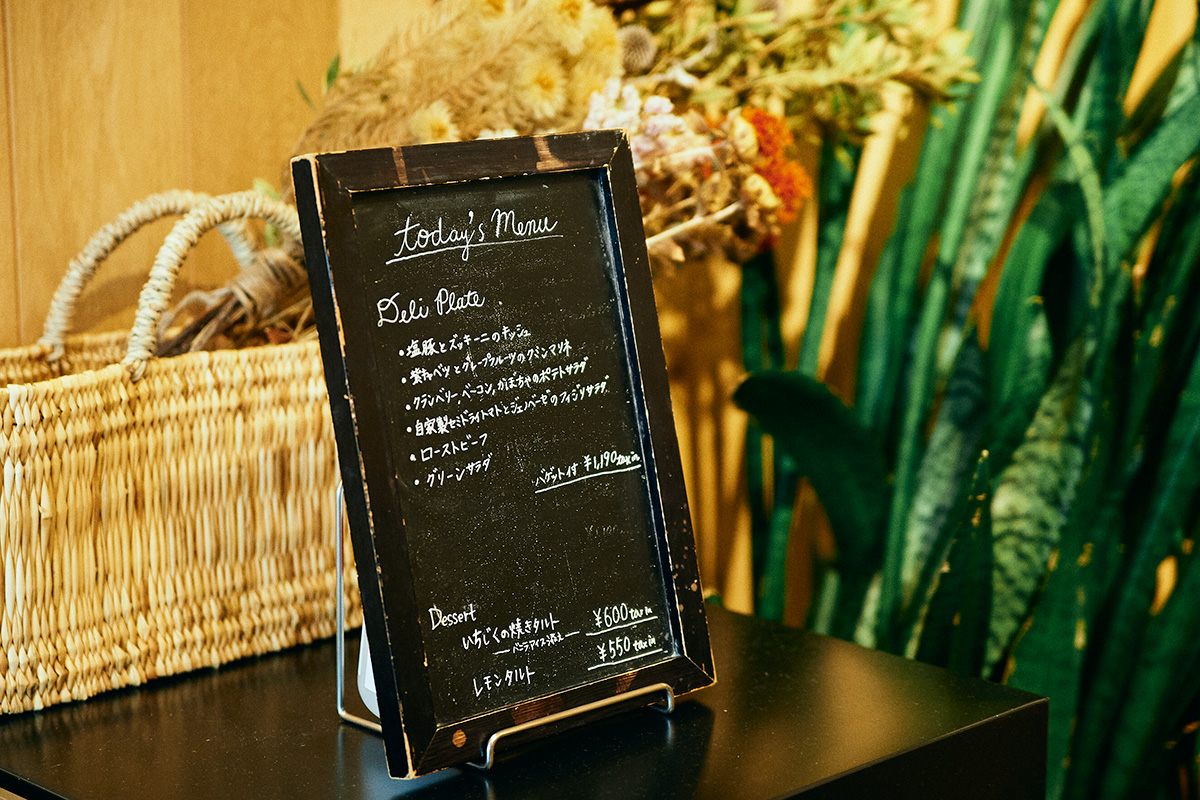 today's Menu
Deli Plate
・塩豚とズッキーニのキッシュ
・紫キャベツとグレープフルーツのクミンマリネ
・クランベリー、ベーコン、かぼちゃのポテトサラダ
・自家製セミドライトマトとジェノベーゼのフィジリサラダ
・ローストビーフ
・グリーンサラダ
バゲット付 ¥1,190 tax in
Dessert
いちじくの焼きタルト ¥600 tax in
バニラアイス添え
レモンタルト ¥550 tax in